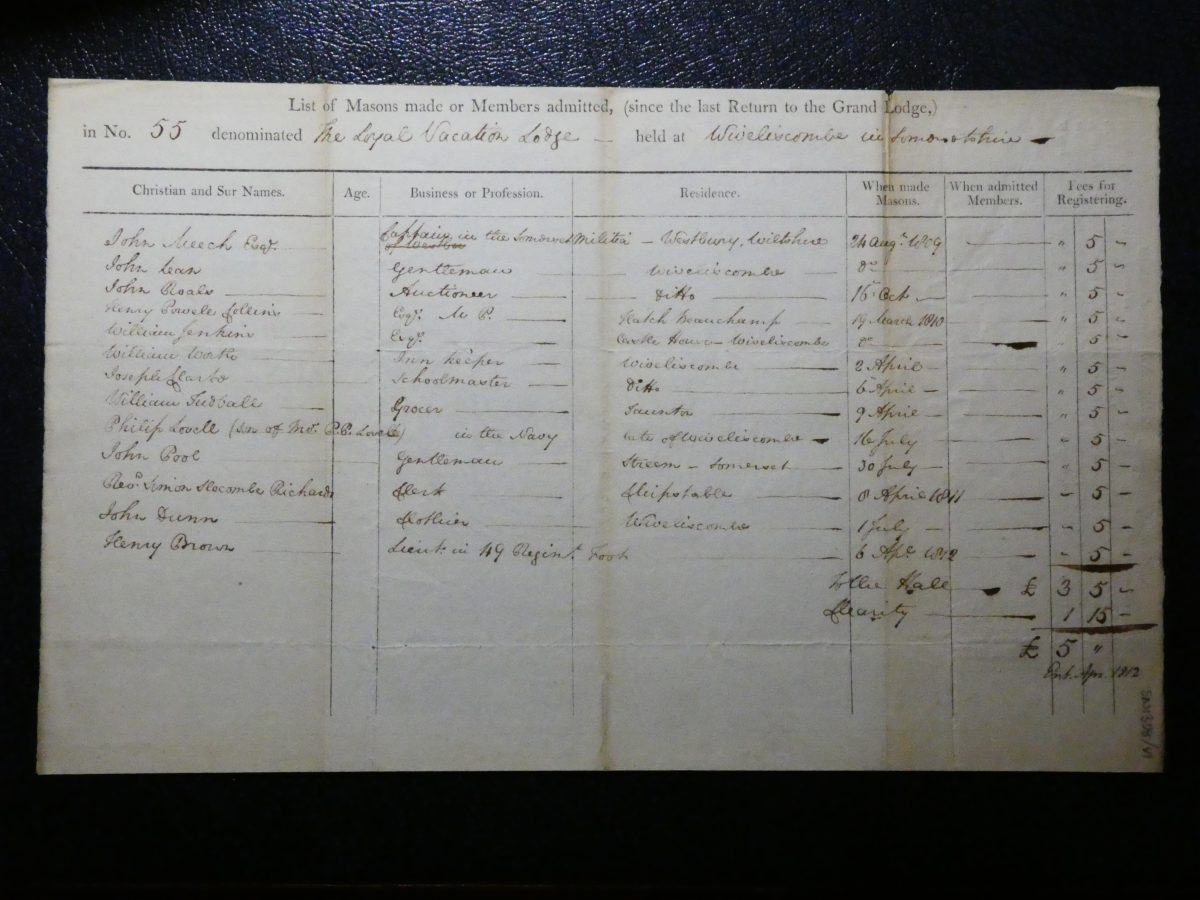 List of Masons made or Members admitted, (since the last Return to the Grand Lodge,)
in No. 55 denominated The Loyal Vacation Lodge — held at Wiveliscombe in Somersetshire —
Christian and Sur Names. Age. Business or Profession. Residence. When made Masons. When admitted Members. Fees for Registering.
John Meech Esqr. Captain in the Somerset Militia — Westbury, Wiltshire 24 Augt. 1809 " 5 –
John Gentleman Wiveliscombe Do " 5 –
John Boals Auctioneer Ditto 15 Oct " 5 –
Henry Powell Collins Esqr. M P. Hatch Beauchamp 19 March 1810 " 5 –
William Jenkins Esqr. Castle House – Wiveliscombe Do " 5 –
William Inn keeper Wiveliscombe 2 April " 5 –
Joseph Clarke Schoolmaster Ditto 6 April " 5 –
William Tudball Grocer Taunton 9 April " 5 –
Philip Lovell (son of Mr. P.P. Lovell) in the Navy late of Wiveliscombe 16 July " 5 –
John Pool Gentleman Streem – Somerset 30 July " 5 –
Revd. Simon Slocombe Richards Clerk Chipstable 8 April 1811 – 5 –
John Dunn Clothier Wiveliscombe 1 July – 5 –
Henry Brown Lieut. in 49 Regimt. Foot 6 Apl. 1812 – 5 –
Hall £ 3 5 –
Charity 1 15 –
£ 5 "
Ent. Apr. 1812